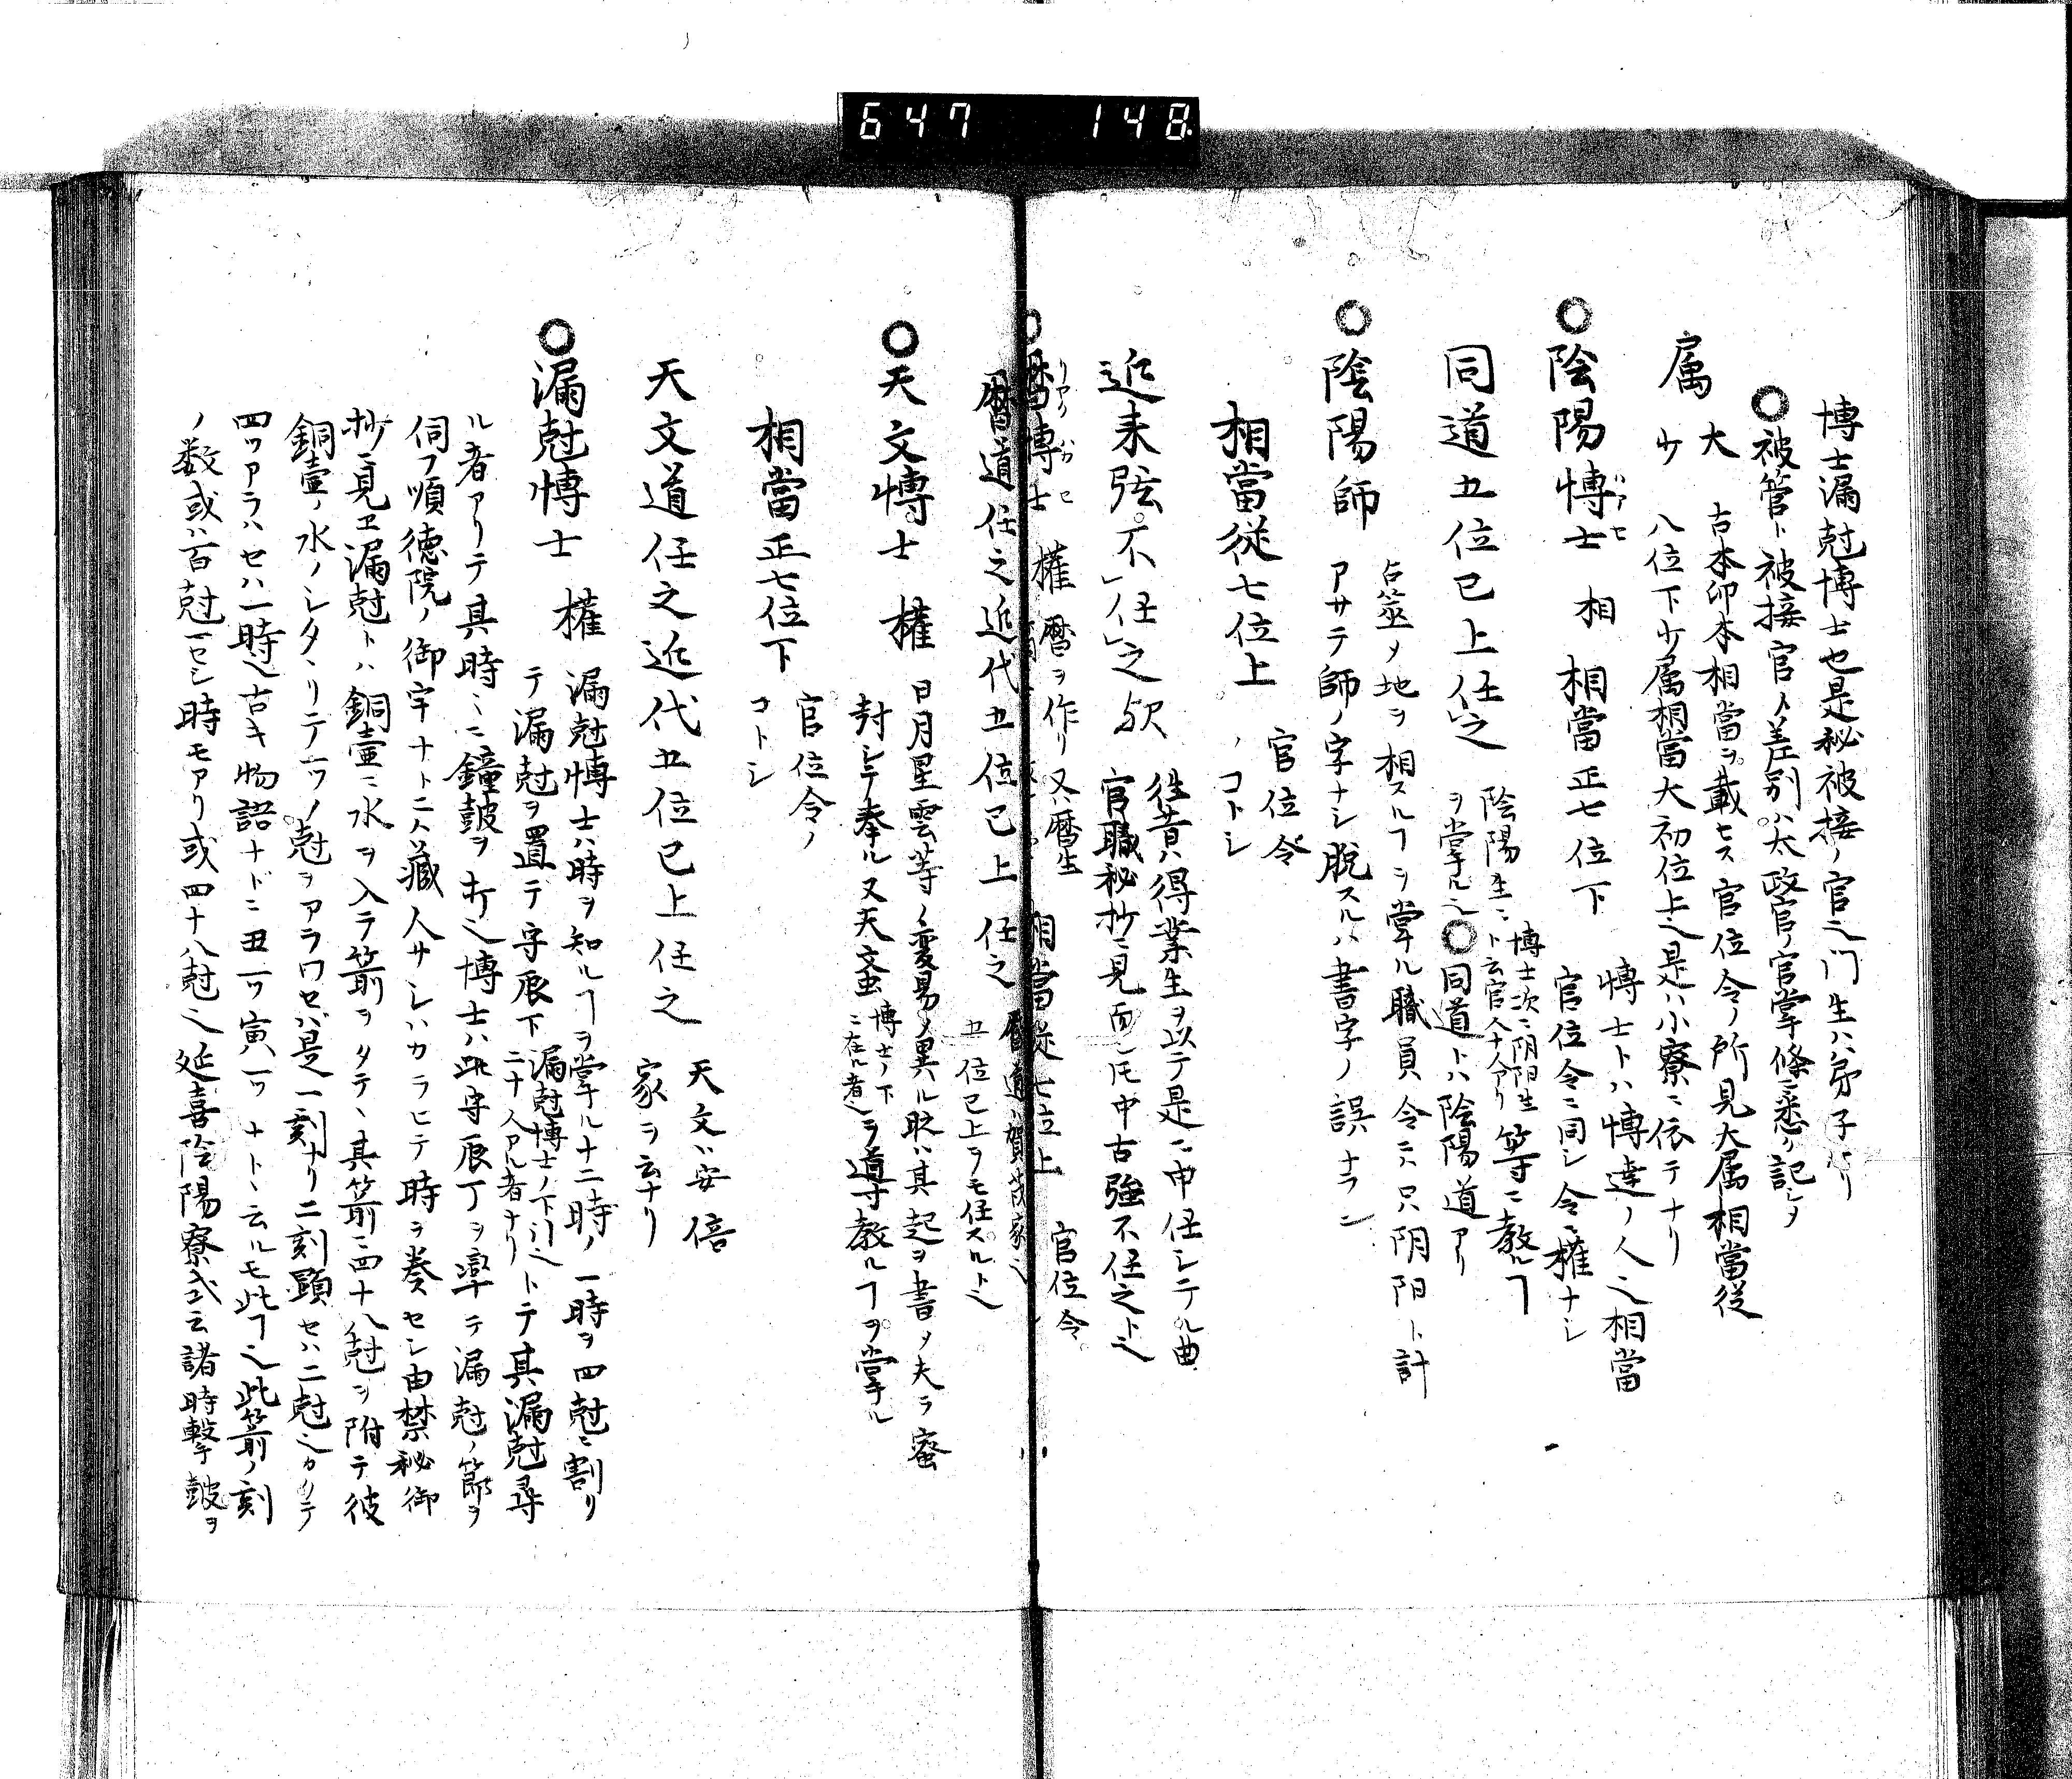 647 148
博士漏尅博士也是秘被接ノ官也門生ハ弟子ナリ
○被管ト被接官ノ差別ハ太政官ノ官掌條ニ悉ク記シヌ
属 大 少 古本印本相當ヲ載セス官位令ノ所見大属相當従
八位下少属相當大初位上也是ハ小寮ニ依テナリ
○陰陽博士 相 相當正七位下 博士トハ博達ノ人也相當
官位令ニ同シ令ニ權ナシ
同道五位已上任之 陰陽生ニ 博士次ニ阴阳生
ト云官人十人アリ 等ニ教ルヿ
ヲ掌ル也○同道トハ陰陽道アリ
○陰陽師 占筮メ地ヲ相スルヿヲ掌ル職員令ニハ只阴阳ト計
アサテ師ノ字ナシ脱スルハ書字ノ誤ナラン
相當従七位上 官位令
ノコトシ
近来弦不任之欤 徃昔ハ得業生ヲ以テ是ニ申任シニテル曲
官職秘抄ニ見面シ𪜈中古強不任之ト也
○暦博士 權 暦ヲ作リ又暦生 相當従七位上 官位令
暦道任之近代五位已上任之 暦道賀茂家也
五位已上ヲモ任スルト也
○天文博士 權 日月星雲等ノ変易ノ異ハル耿ハ其起ヲ書メ夫ヲ蜜
封シテ奉ル又天文蚉 博士ノ下
ニ在ル者也 ヲ導教ルヿヲ掌ル
相當正七位下 官位令ノ
コトシ
天文道任之近代五位已上任之 天文ハ安倍
家ヲ云ナリ
○漏尅博士 權 漏尅博士ハ時ヲ知ルヿヲ掌ル十二時ノ一時ヲ四尅ニ割リ
テ漏尅ヲ置デ守辰下 漏尅博士ノ下引也
二十人アル者ナリ トテ其漏尅尋
ル者アリテ其時ニニ鐘皷ヲ打也博士ハ此守辰丁ヲ率テ漏尅ノ節ヲ
伺フ順徳院ノ御宇ナト二ハ藏人サシハカラヒテ時ヲ奏セシ由禁秘御
抄ニ見ヱ漏尅トハ銅壷ニ水ヲ入ラ箭ヲタテヽ其箭ニ四十八尅ヲ附テ彼
銅壷ノ水ノシタヽリテ一ツノ尅ヲアラワセバ是一刻ナリ二刻顕セハ二尅也カクテ
四ツアラハセハ一時也古キ物語ナドニ丑一ツ寅一ツナトヽ云ルモ此ヿ也此箭ノ刻
ノ数或ハ百尅ニセシ時モアリ或四十八尅也延喜陰陽寮式云諸時撃皷ヲ